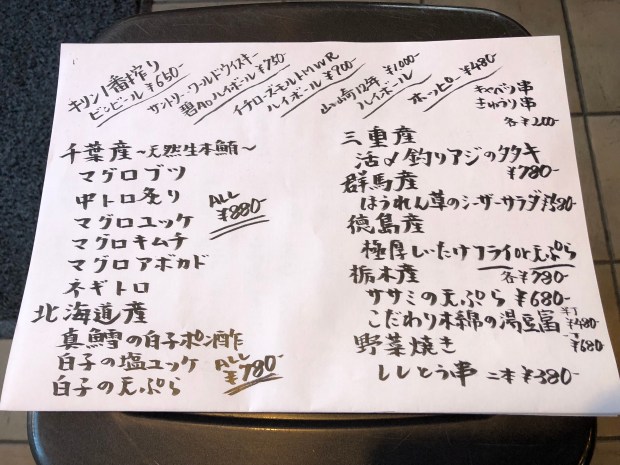 キリン1番搾り
ビンビール ¥650-
サントリーワールドウイスキー
碧Aoハイボール ¥750-
イチローズモルトMWR
ハイボール ¥900-
山崎12年 ¥1000-
ハイボール
ホッピー ¥480-
キャベツ串
きゅうり串
各¥200-
千葉産〜天然生本鮪〜
マグロブツ
中トロ炙り
マグロユッケ
マグロキムチ
マグロアボカド
ネギトロ
ALL
¥880-
北海道産
真鱈の白子ポン酢
白子の塩ユッケ
白子の天ぷら
ALL
¥780-
三重産
活〆釣りアジのタタキ
¥780-
群馬産
ほうれん草のシーザーサラダ
徳島産
極厚しいたけフライor天ぷら
各¥780-
栃木産
ササミの天ぷら ¥680-
こだわり木綿の湯豆富 ¥480-
¥680-
野菜焼き
ししとう串 二本 ¥380-